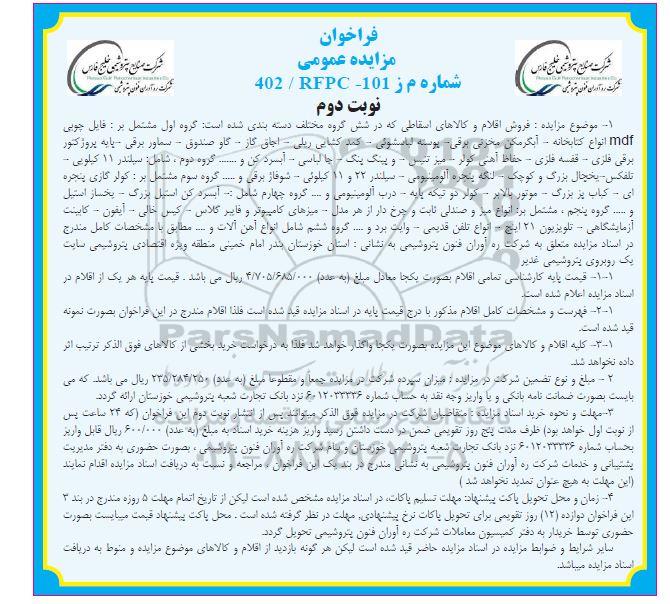 فراخوان
مزایده عمومی
شماره م ز 101- RFPC / 402
نوبت دوم
شرکت صنایع پتروشیمی خلیج فارس
Persian Gulf Petrochemical Industries Co.
شرکت ره آوران فنون پتروشیمی
شرکت صنایع پتروشیمی خلیج فارس
Persian Gulf Petrochemical Industries Co.
شرکت ره آوران فنون پتروشیمی
۱- موضوع مزایده : فروش اقلام و کالاهای اسقاطی که در شش گروه مختلف دسته بندی شده است: گروه اول مشتمل بر : فایل چوبی
mdf انواع کتابخانه - آبگرمکن مخزنی برقی- پوسته لباسشوئی - کمد کشابی ریلی - اجاق گاز - گاو صندوق - سماور برقی -پایه پروژکتور
برقی فلزی - قفسه فلزی - حفاظ آهنی کولر - میز تنیس - و پینک پنک - جا لباسی - آبسرد کن و ...... گروه دوم ، شامل: سیلندر ۱۱ کیلویی -
تلفکس-یخچال بزرگ و کوچک - لنگه پنجره آلومینیومی - سیلندر ۲۲ و ۱۱ کیلوئی - شوفاژ برقی و .... گروه سوم مشتمل بر : کولر گازی پنجره
ای - کباب پز بزرگ - موتور بالابر - کولر دو تیکه پایه - درب آلومینیومی و .... گروه چهارم شامل :- آبسرد کن استیل بزرگ - یخساز استیل
و ..... گروه پنجم ، مشتمل بر: انواع میز و صندلی ثابت و چرخ دار از هر مدل - میزهای کامپیوتر و فایبر گلاس - کیس خالی - آیفون - کابینت
آزمایشگاهی - تلویزیون ۲۱ اینچ - انواع تلفن قدیمی - وایت برد و .... گروه ششم شامل انواع آهن آلات و .... مطابق با مشخصات کامل مندرج
در اسناد مزایده متعلق به شرکت ره آوران فنون پتروشیمی به نشانی : استان خوزستان بندر امام خمینی منطقه ویژه اقتصادی پتروشیمی سایت
یک روبروی پتروشیمی غدیر
۱-۱- قیمت پایه کارشناسی تمامی اقلام بصورت یکجا معادل مبلغ (به عدد) ۴/۷۰۵/۶۸۵/۰۰۰ ریال می باشد . قیمت پایه هر یک از اقلام در
اسناد مزایده اعلام شده است.
۱-۲- فهرست و مشخصات کامل اقلام مذکور با درج قیمت پایه در اسناد مزایده قید شده است فلذا اقلام مندرج در این فراخوان بصورت نمونه
قید شده است.
۱-۳- کلیه اقلام و کالاهای موضوع این مزایده بصورت یکجا واگذار خواهد شد فلذا به درخواست خرید بخشی از کالاهای فوق الذکر ترتیب اثر
داده نخواهد شد.
۲ - مبلغ و نوع تضمین شرکت در مزایده : میزان سپرده شرکت در مزایده جمعاً و مقطوعا مبلغ (به عدد) ۲۳۵/۲۸۴/۲۵۰ ریال می باشد. که می
بایست بصورت ضمانت نامه بانکی و یا واریز وجه نقد به حساب شماره ۶۰۱۲۰۳۳۳۳۶ نزد بانک تجارت شعبه پتروشیمی خوزستان ارائه گردد.
۳-مهلت و نحوه خرید اسناد مزایده : متقاضیان شرکت در مزایده فوق الذکر میتوانند پس از انتشار نوبت دوم این فراخوان (که ۲۴ ساعت پس
از نوبت اول خواهد بود) ظرف مدت پنج روز تقویمی ضمن در دست داشتن رسید واریز هزینه خرید اسناد به مبلغ (به عدد) ۶۰۰/۰۰۰ ریال قابل واریز
بحساب شماره ۶۰۱۲۰۳۳۳۳۶ نزد بانک تجارت شعبه پتروشیمی خوزستان و بنام شرکت ره آوران فنون پتروشیمی ، بصورت حضوری به دفتر مدیریت
پشتیبانی و خدمات شرکت ره آوران فنون پتروشیمی به نشانی مندرج در بند یک این فراخوان ، مراجعه و نسبت به دریافت اسناد مزایده اقدام نمایند
(این مهلت به هیچ عنوان تمدید نخواهد شد )
۴- زمان و محل تحویل پاکت پیشنهاد: مهلت تسلیم پاکات، در اسناد مزایده مشخص شده است لیکن از تاریخ اتمام مهلت ۵ روزه مندرج در بند ۳
این فراخوان دوازده (۱۲) روز تقویمی برای تحویل پاکات نرخ پیشنهادی, مهلت در نظر گرفته شده است . محل پاکت پیشنهاد قیمت میبایست بصورت
حضوری توسط خریدار به دفتر کمیسیون معاملات شرکت ره آوران فنون پتروشیمی تحویل گردد.
سایر شرایط و ضوابط مزایده در اسناد مزایده حاضر قید شده است لیکن هر گونه بازدید از اقلام و کالاهای موضوع مزایده و منوط به دریافت
اسناد مزایده میباشد.
ParsNamadData